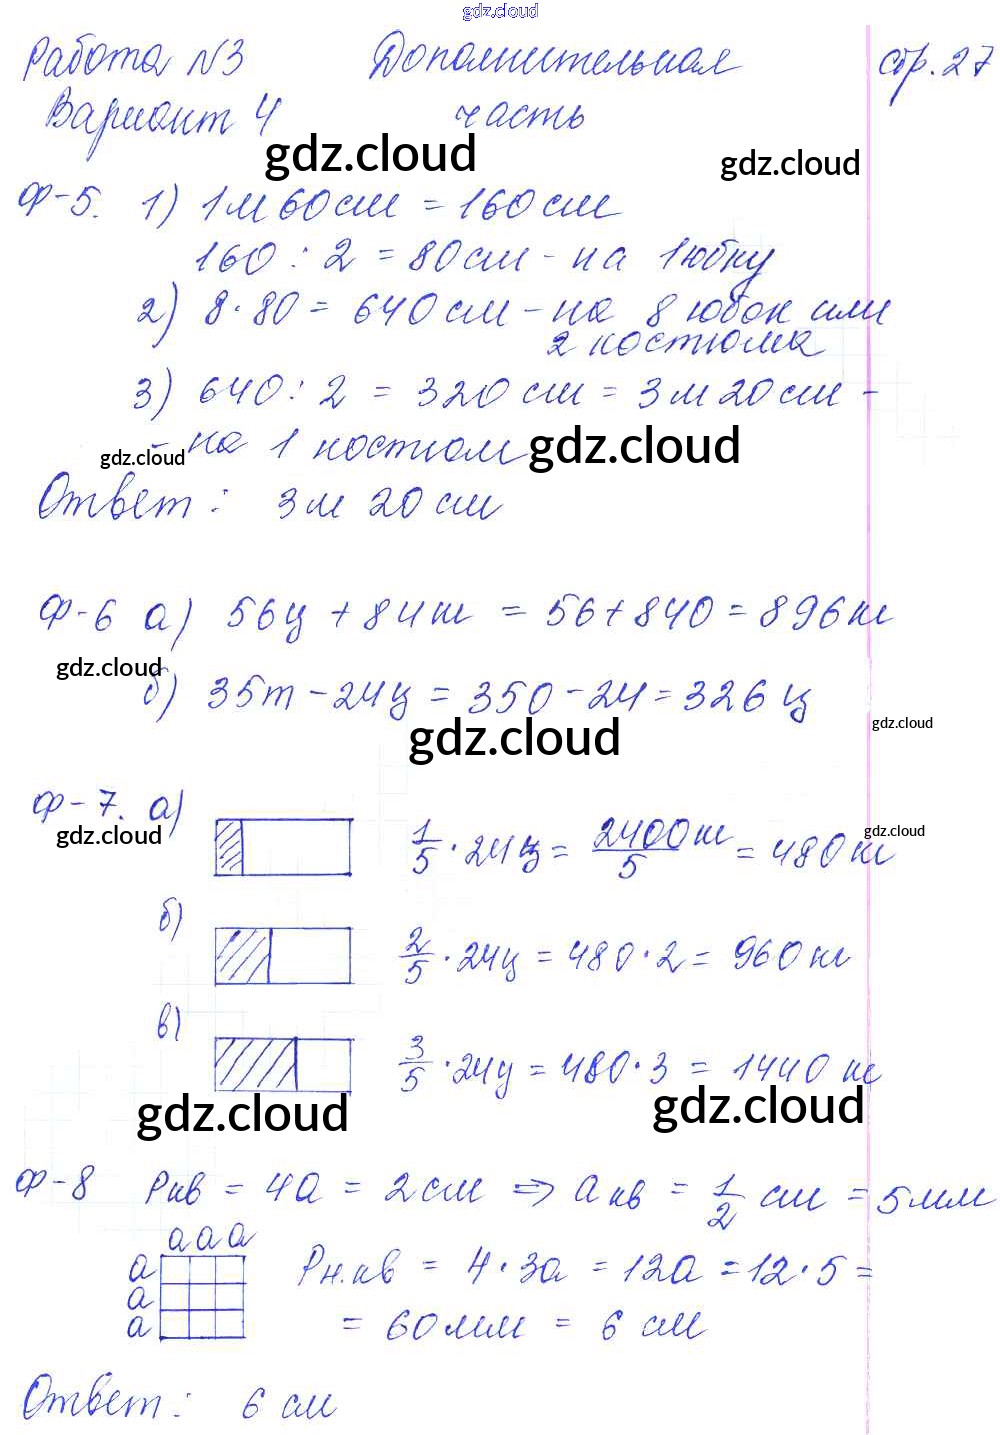 gdz.cloud
Работа №3 Дополнительная стр. 27
Вариант 4 часть
gdz.cloud gdz.cloud
Ф-5. 1) 1м 60см = 160см
160 : 2 = 80см - на 1 юбку
2) 8 · 80 = 640 см - на 8 юбок или
2 костюма
3) 640 : 2 = 320 см = 3м 20см -
- на 1 костюм
gdz.cloud gdz.cloud
Ответ: 3м 20 см
Ф-6 а) 56ц + 84т = 56+840 = 896ц
gdz.cloud
б) 35т - 24ц = 350 - 24 = 326 ц
gdz.cloud gdz.cloud
Ф-7. а)
gdz.cloud gdz.cloud
1/5 · 24ц = 2400кг/5 = 480кг
б) 2/5 · 24ц = 480 · 2 = 960кг
в) 3/5 · 24ц = 480 · 3 = 1440 кг
gdz.cloud gdz.cloud
Ф-8 Pкв = 4а = 2см ⇒ aкв = 1/2 см = 5мм
а а а
а
а
а
Pн.кв = 4 · 3а = 12а = 12 · 5 =
= 60мм = 6 см
Ответ: 6 см